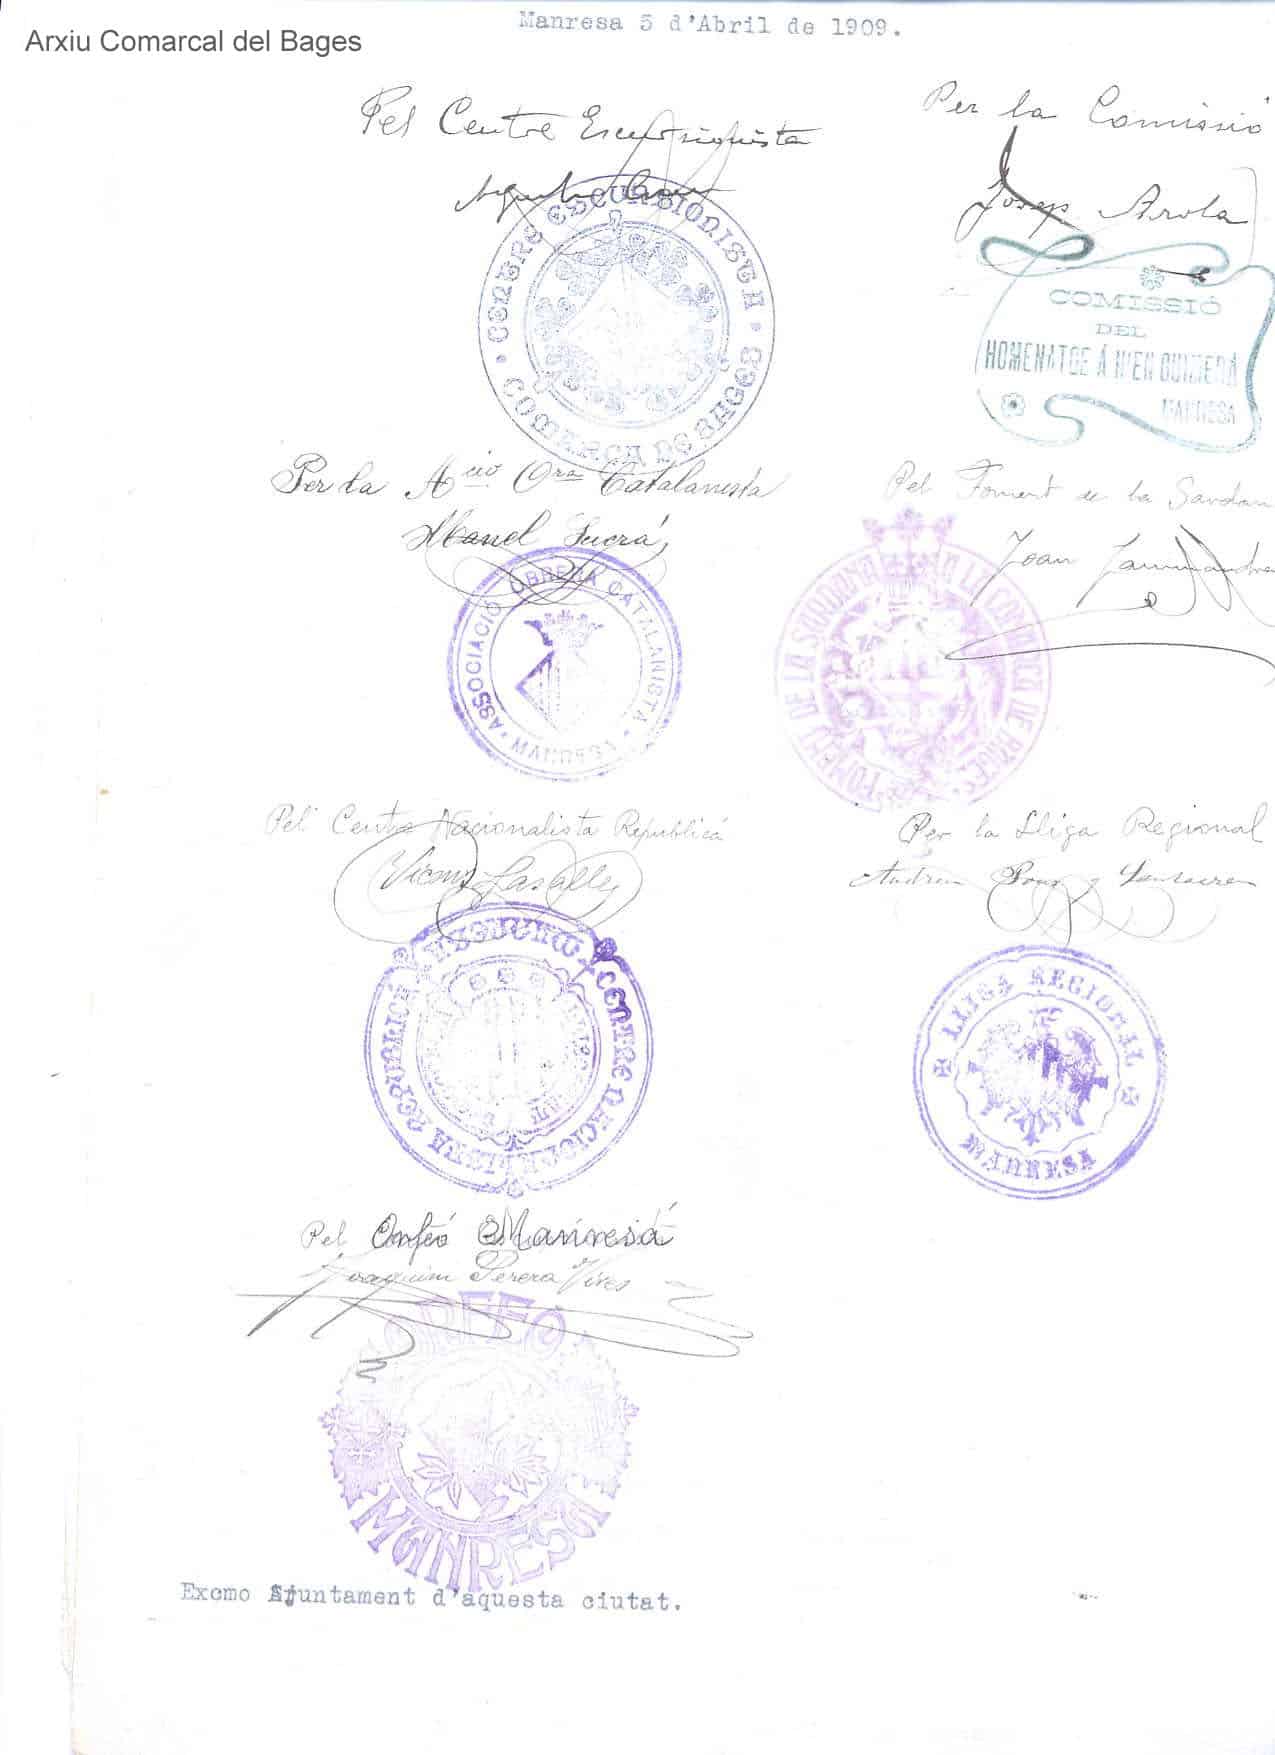 Manresa 5 d'Abril de 1909.
Arxiu Comarcal del Bages
Pel Centre Excursionista
CENTRE EXCURSIONISTA
COMARCA DE BAGES
Per la Comissió
Josep Arola
COMISSIÓ
DEL
HOMENATGE Á N'EN GUIMERÁ
MANRESA
Per la Ació Ora Catalanista
Manel
ASSOCIACIÓ OBRERA CATALANISTA
MANRESA
Pel Foment de la Sardan
Joan
FOMENT DE LA SARDANA A LA COMARCA DE BAGES
Pel Centre Nacionalista Republicá
Vicens Lasalle
CENTRE NACIONALISTA REPUBLICÁ
MANRESA
Per la Lliga Regional
Andreu
LLIGA REGIONAL
MANRESA
Pel Orfeó Manresá
Joaquim Perera Vives
ORFEÓ
MANRESÁ
Excmo Ajuntament d'aquesta ciutat.